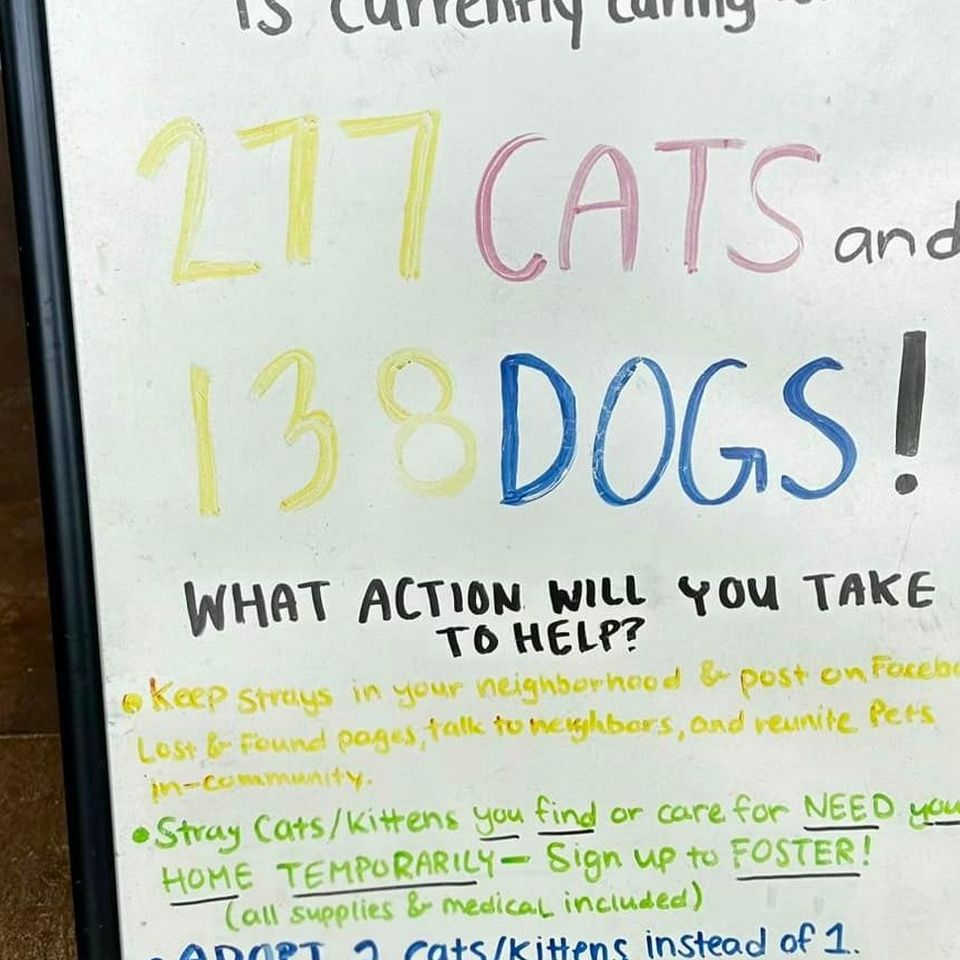 is currently caring
277 CATS and
138 DOGS!
WHAT ACTION WILL YOU TAKE
TO HELP?
• Keep strays in your neighborhood & post on Facebo
Lost & Found pages, talk to neighbors, and reunite Pets
in-community.
• Stray Cats/Kittens you find or care for NEED you
HOME TEMPORARILY - Sign up to FOSTER!
(all supplies & medical included)
• ADOPT 2 cats/kittens instead of 1.